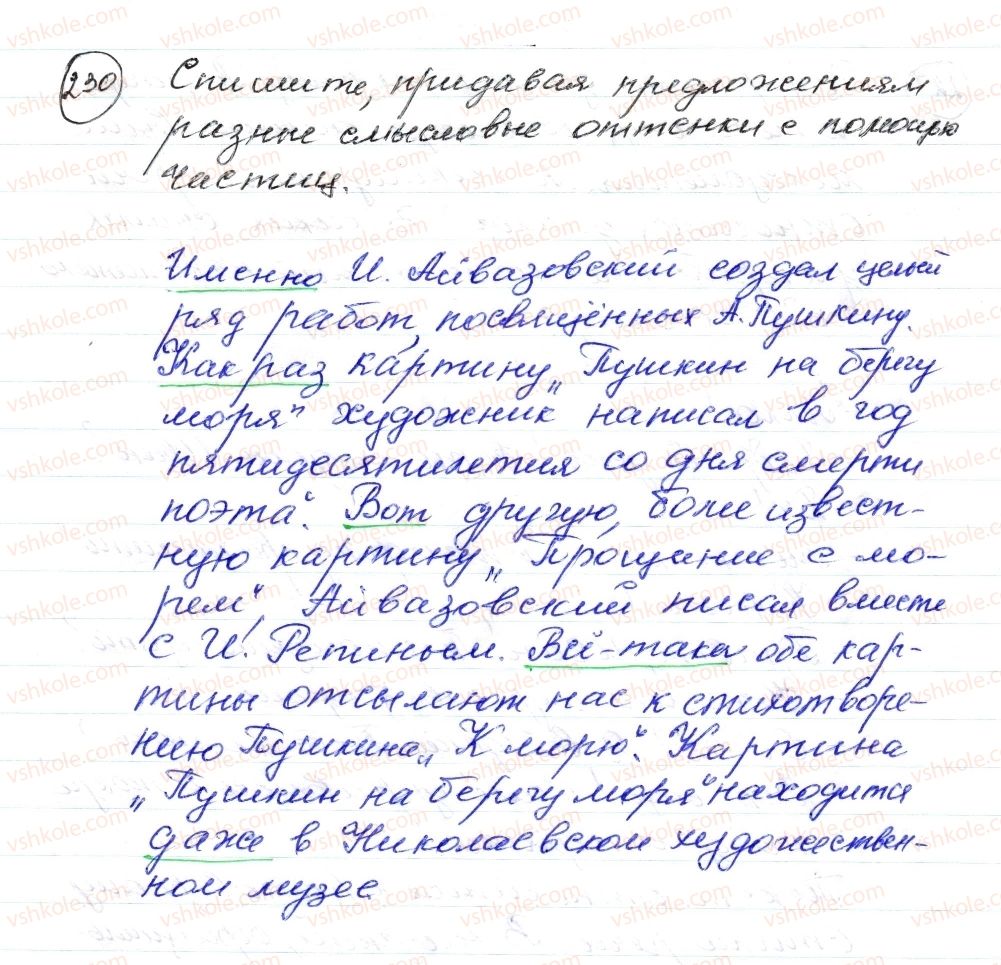 230 Спишите, придавая предложениям
разные смысловые оттенки с помощью
частиц.
Именно И. Айвазовский создал целый
ряд работ, посвящённых А. Пушкину.
Как раз картину „Пушкин на берегу
моря“ художник написал в год
пятидесятилетия со дня смерти
поэта“. Вот другую, более извест-
ную картину „Прощание с мо-
рем“, Айвазовский писал вместе
с И. Репиным. Всё-таки обе кар-
тины отсылают нас к стихотворе-
нию Пушкина „К морю“. Картина
„Пушкин на берегу моря“ находится
даже в Николаевском художествен-
ном музее